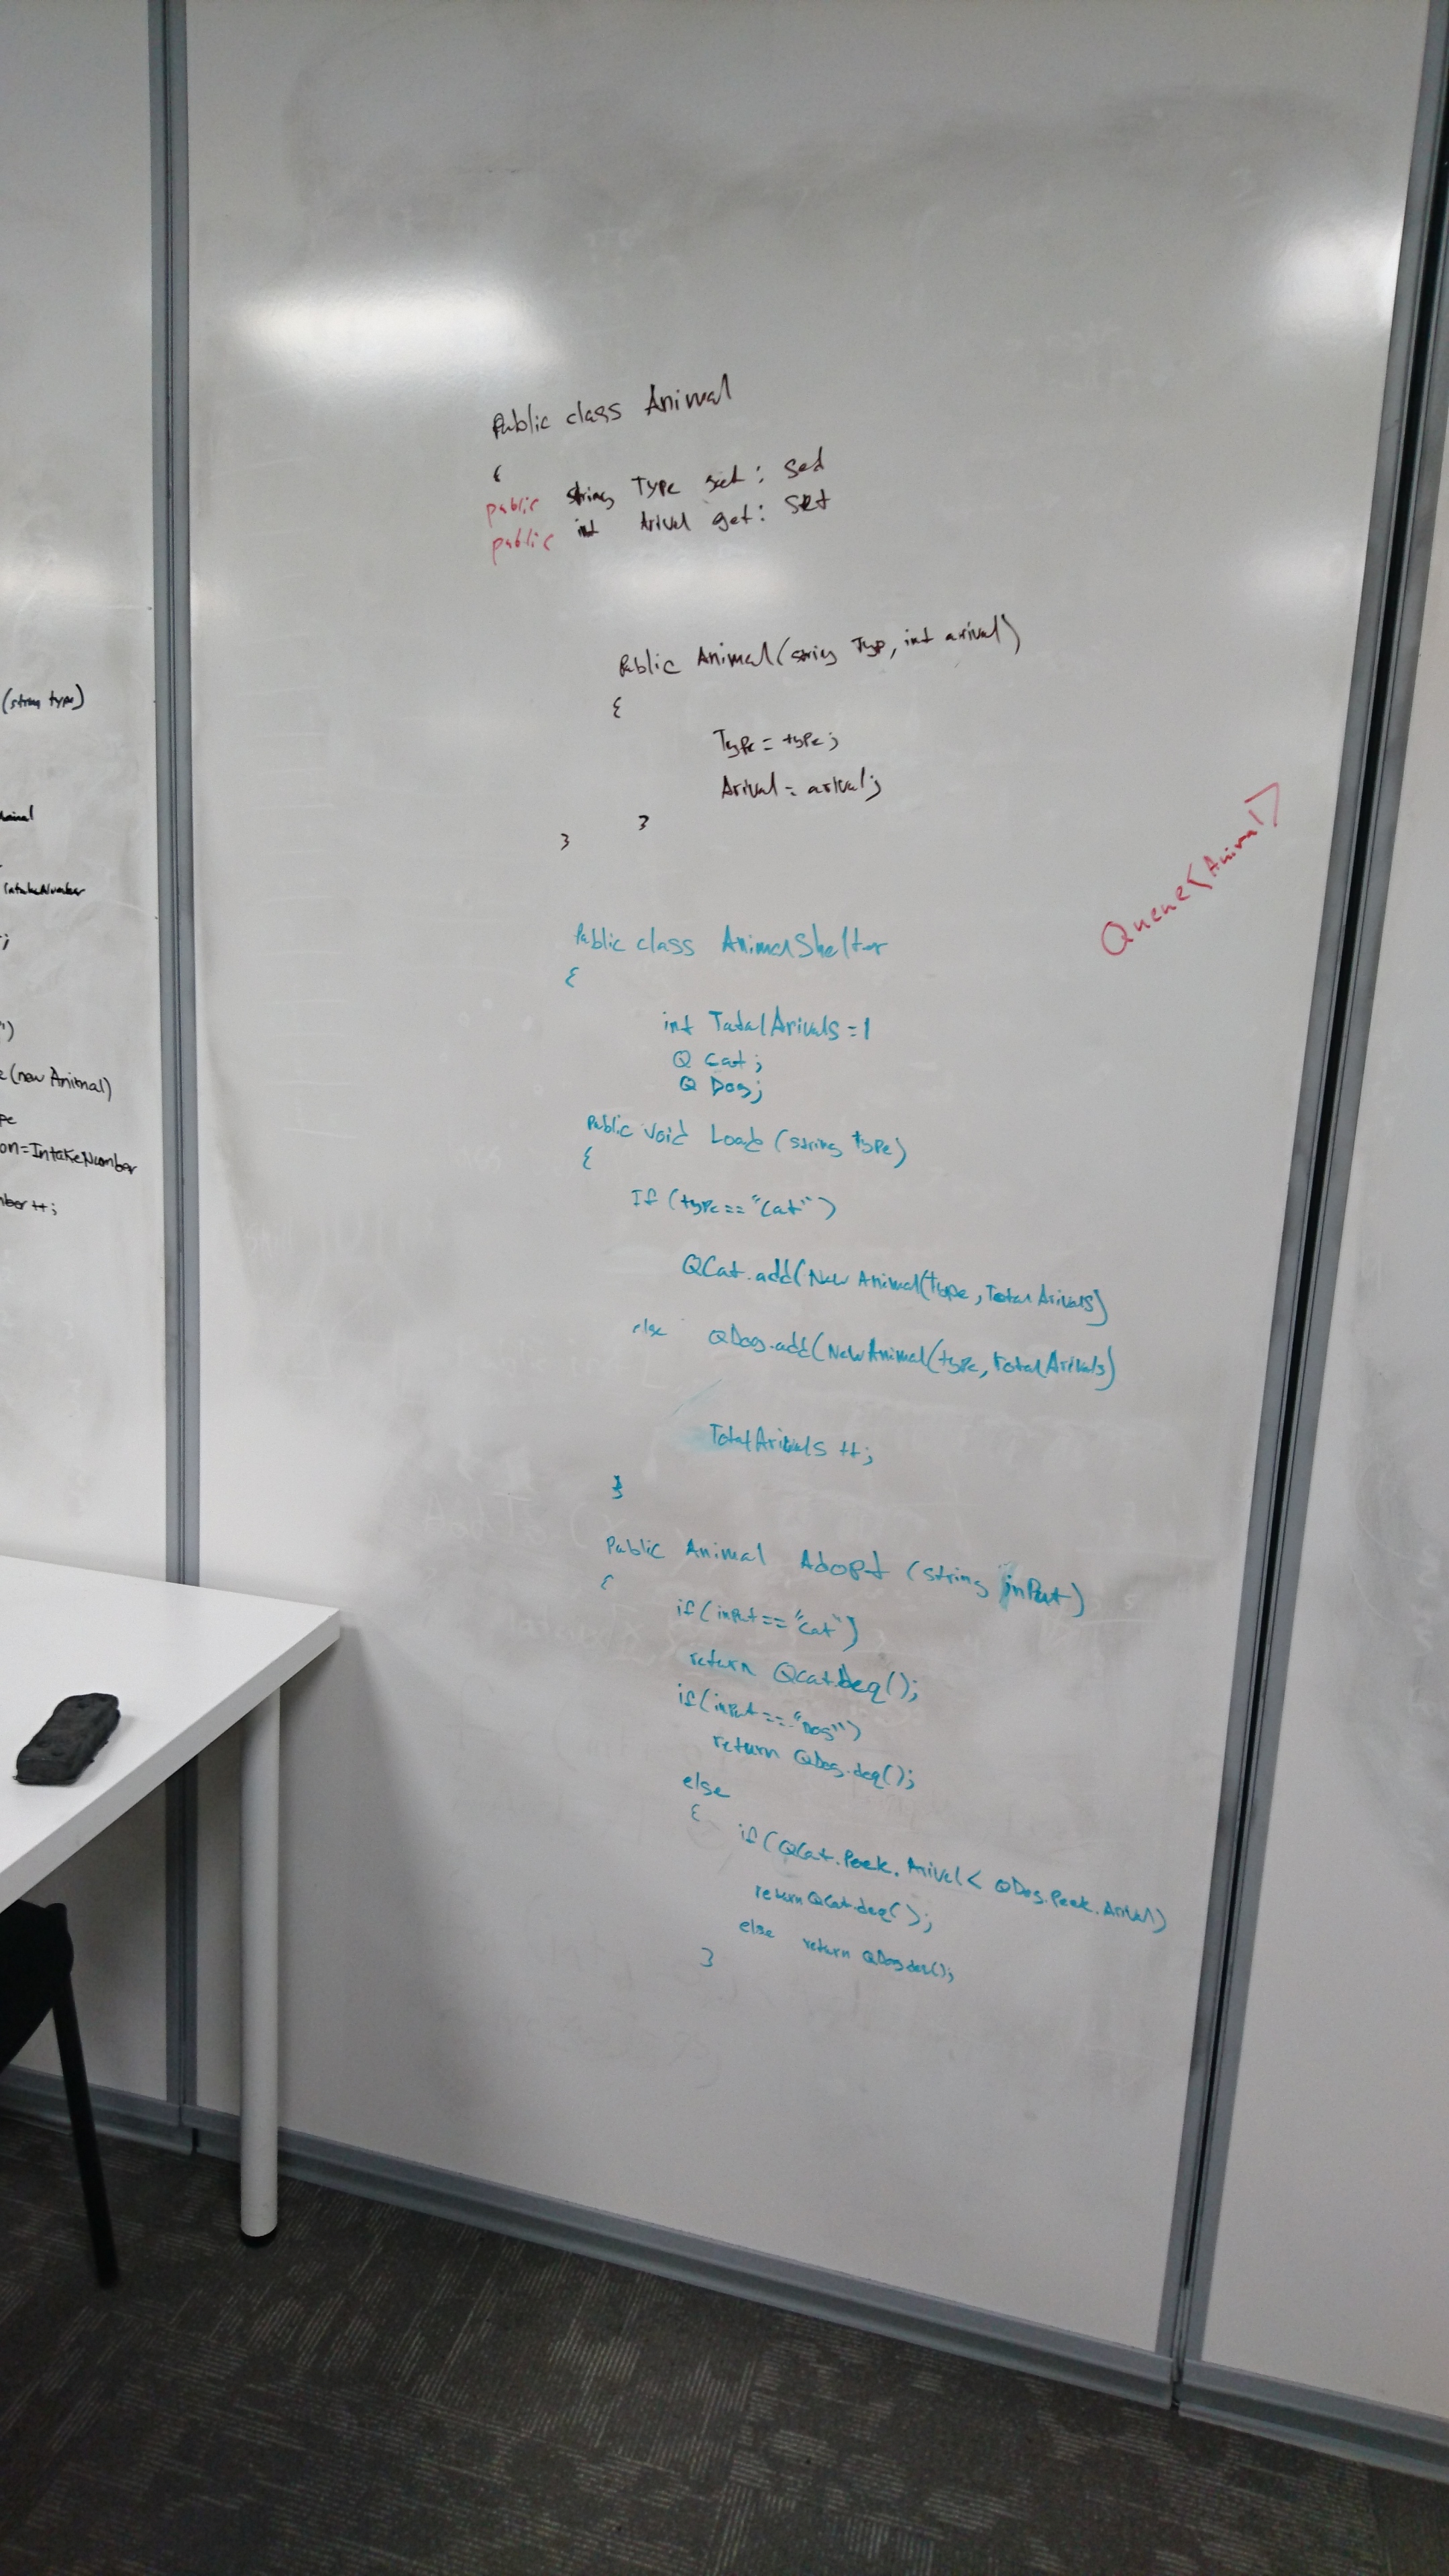 (string type)
IntakeNumber
;
")
(new Animal)
on=IntakeNumber
mber ++;
Public class Animal
{
public string Type get: Set
public int Arival get: Set
Public Animal(string Typ, int arival)
{
Type = type;
Arival = arival;
}
}
Queue<Animal>
Public class AnimalShelter
{
int TotalArivals = 1
Q Cat;
Q Dog;
Public void Load (string type)
{
If (type == "Cat")
QCat.add(New Animal(type, TotalArivals)
else QDog.add(New Animal(type, TotalArivals)
TotalArivals ++;
}
Public Animal Adopt (string inPut)
{
if (inPut == "Cat")
return QCat.Deq();
if (inPut == "Dog")
return QDog.deq();
else
{
if (QCat.Peek. Arival < QDog.Peek. Arival)
return QCat.deq();
else return QDog.deq();
}